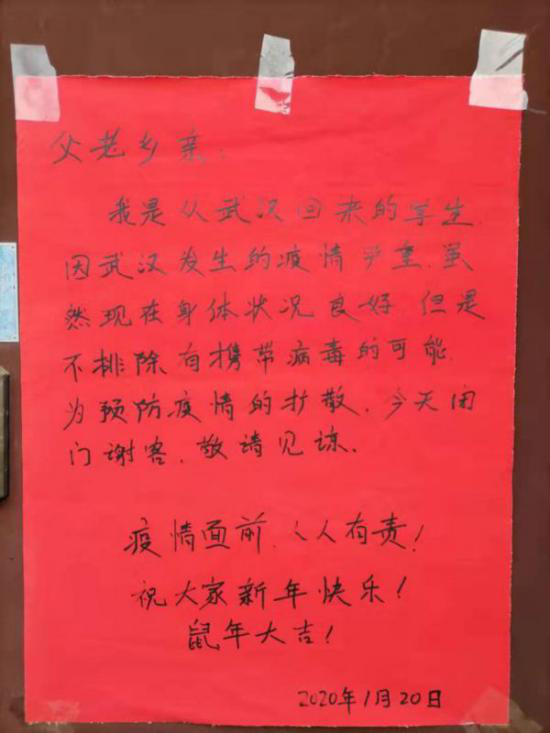 父老乡亲：
我是从武汉回来的学生，
因武汉发生的疫情严重，虽
然现在身体状况良好，但是
不排除有携带病毒的可能，
为预防疫情的扩散，今天闭
门谢客，敬请见谅。
疫情面前，人人有责！
祝大家新年快乐！
鼠年大吉！
2020年1月20日